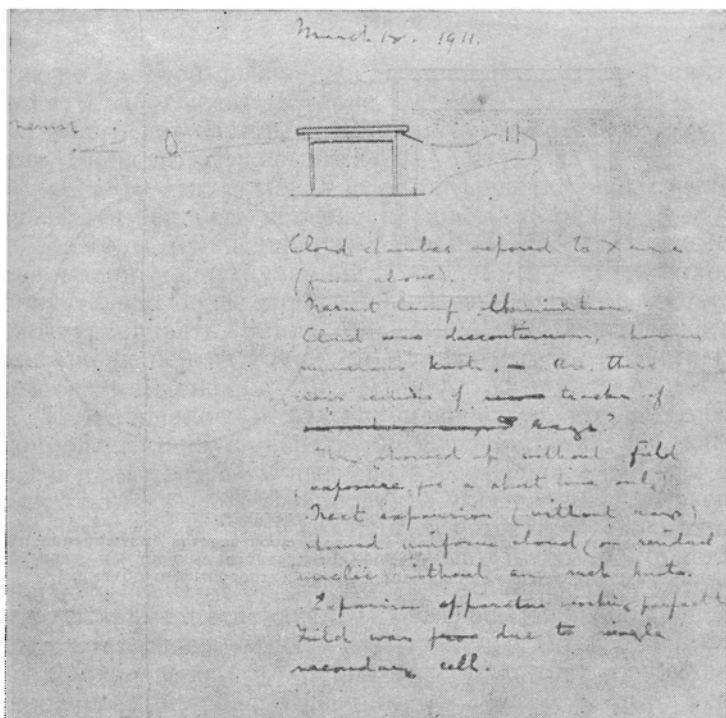 March 18. 1911.
Nernst
Cloud chamber exposed to X rays
(from above).
Nernst lamp illumination.
Cloud was discontinuous, showing
numerous knots. – Are there
cross sections of tracks of
rays?
showed up without field
exposure for a short time only)
Next expansion (without rays)
showed uniform cloud (on residual
nuclei without any such knots.
Expansion apparatus working perfectly
Field was due to single
secondary cell.